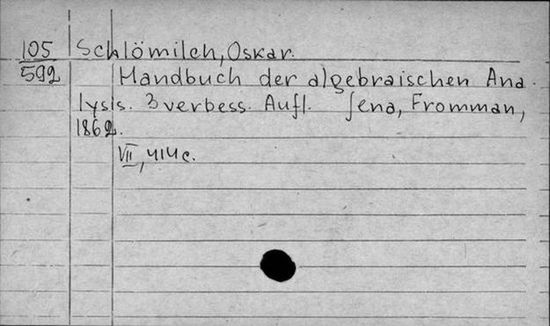 105 Schlömilch, Oskar.
592 Handbuch der algebraischen Ana-
lysis. 3 verbess. Aufl. Jena, Fromman,
1862.
VII, 414 c.